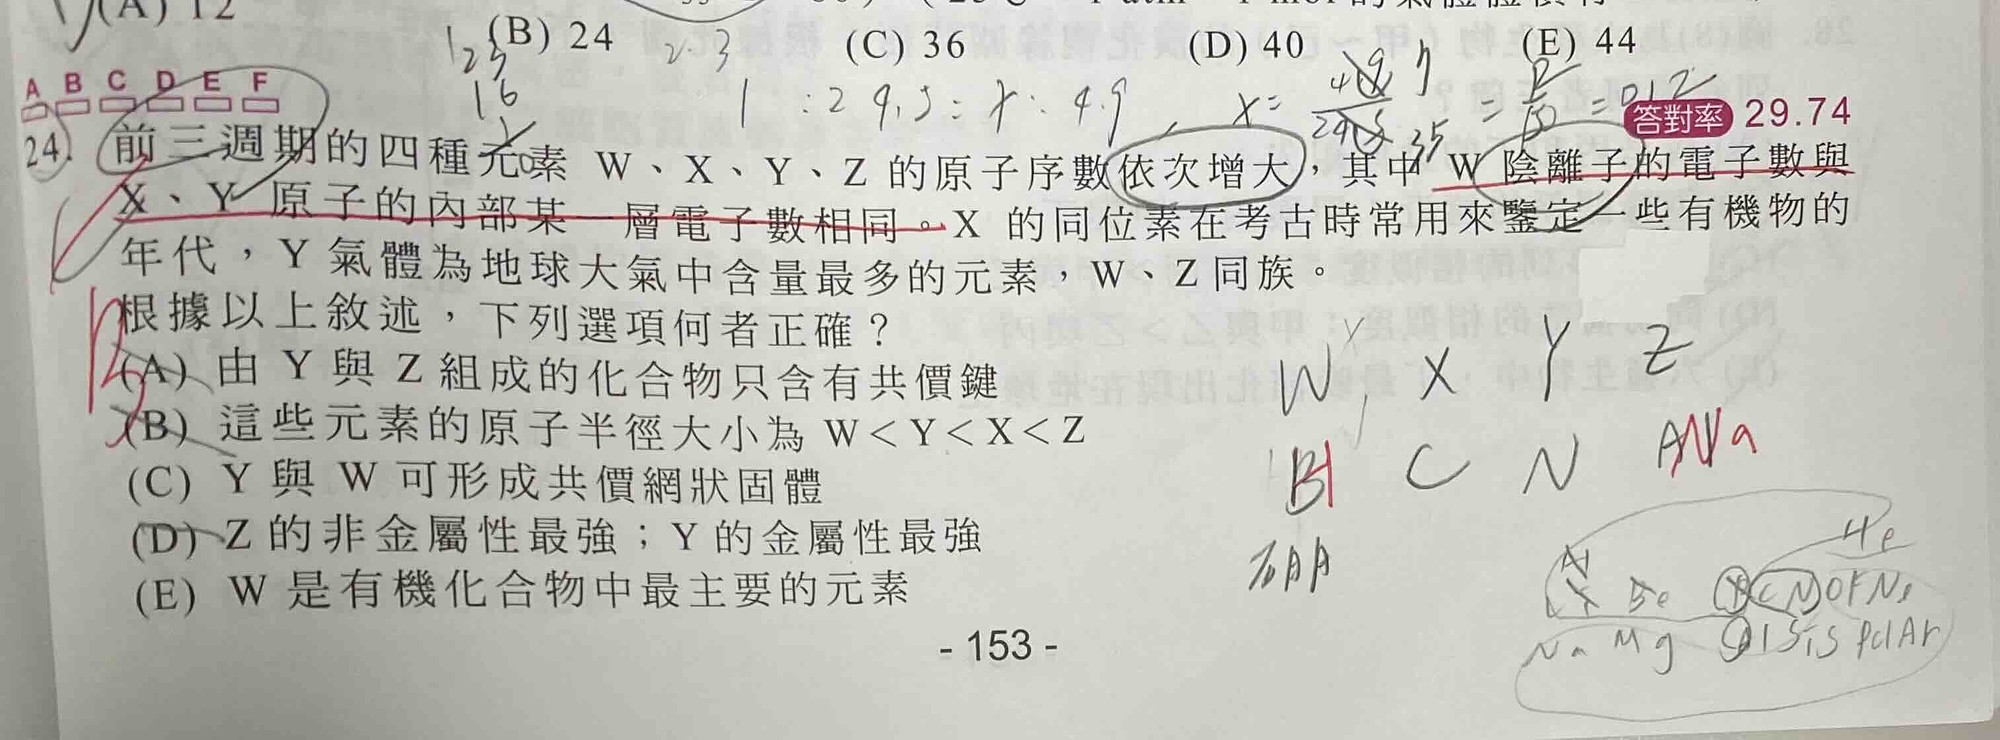 (A) 12
(B) 24 (C) 36 (D) 40 (E) 44
A B C D E F
答對率 29.74
24. 前三週期的四種元素 W、X、Y、Z 的原子序數依次增大，其中 W 陰離子的電子數與
X、Y 原子的內部某一層電子數相同。X 的同位素在考古時常用來鑒定一些有機物的
年代，Y 氣體為地球大氣中含量最多的元素，W、Z 同族。
根據以上敘述，下列選項何者正確？
(A) 由 Y 與 Z 組成的化合物只含有共價鍵
(B) 這些元素的原子半徑大小為 W＜Y＜X＜Z
(C) Y 與 W 可形成共價網狀固體
(D) Z 的非金屬性最強；Y 的金屬性最強
(E) W 是有機化合物中最主要的元素
W X Y Z
H C N Na
He
Be B C N O F Ne
Na Mg Al Si S P Cl Ar
- 153 -